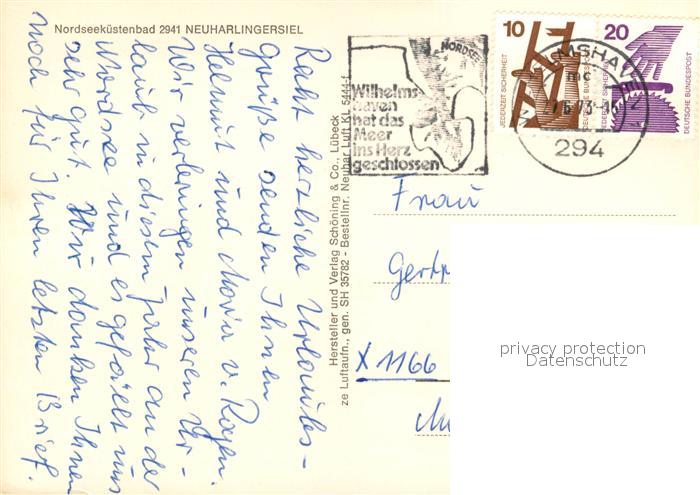 Nordseeküstenbad 2941 NEUHARLINGERSIEL
Recht herzliche Urlaubs-
grüße senden Ihnen
Helmut und Maria v. Ragen.
Wir verbringen unseren Ur-
laub in diesem Jahr an der
Nordsee und es gefällt uns
sehr gut. Wir danken Ihnen
noch für Ihren letzten Brief.
Hersteller und Verlag Schöning & Co., Lübeck
ze Luftaufn., gen. SH 35782 - Bestellnr. Neuhar Luft KL
NORDSEE
Wilhelms-
haven
hat das
Meer
ins Herz
geschlossen
10
JEDERZEIT SICHERHEIT
DEUTSCHE BUNDESPOST
20
JEDERZEIT SICHERHEIT
DEUTSCHE BUNDESPOST
mc
294
Frau
X 1166
privacy protection
Datenschutz